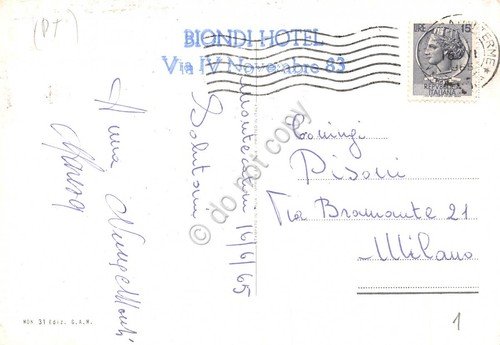 (PT)
BIONDI HOTEL
Via IV Novembre 83
LIRE 15
REPUBBLICA
ITALIANA
TERME
Montecatini 16/6/65
Salutoni
Anna
Coniugi
Pisoni
Via Bramante 21
Milano
MON. 31 Ediz. G.A.M.
1
© do not copy